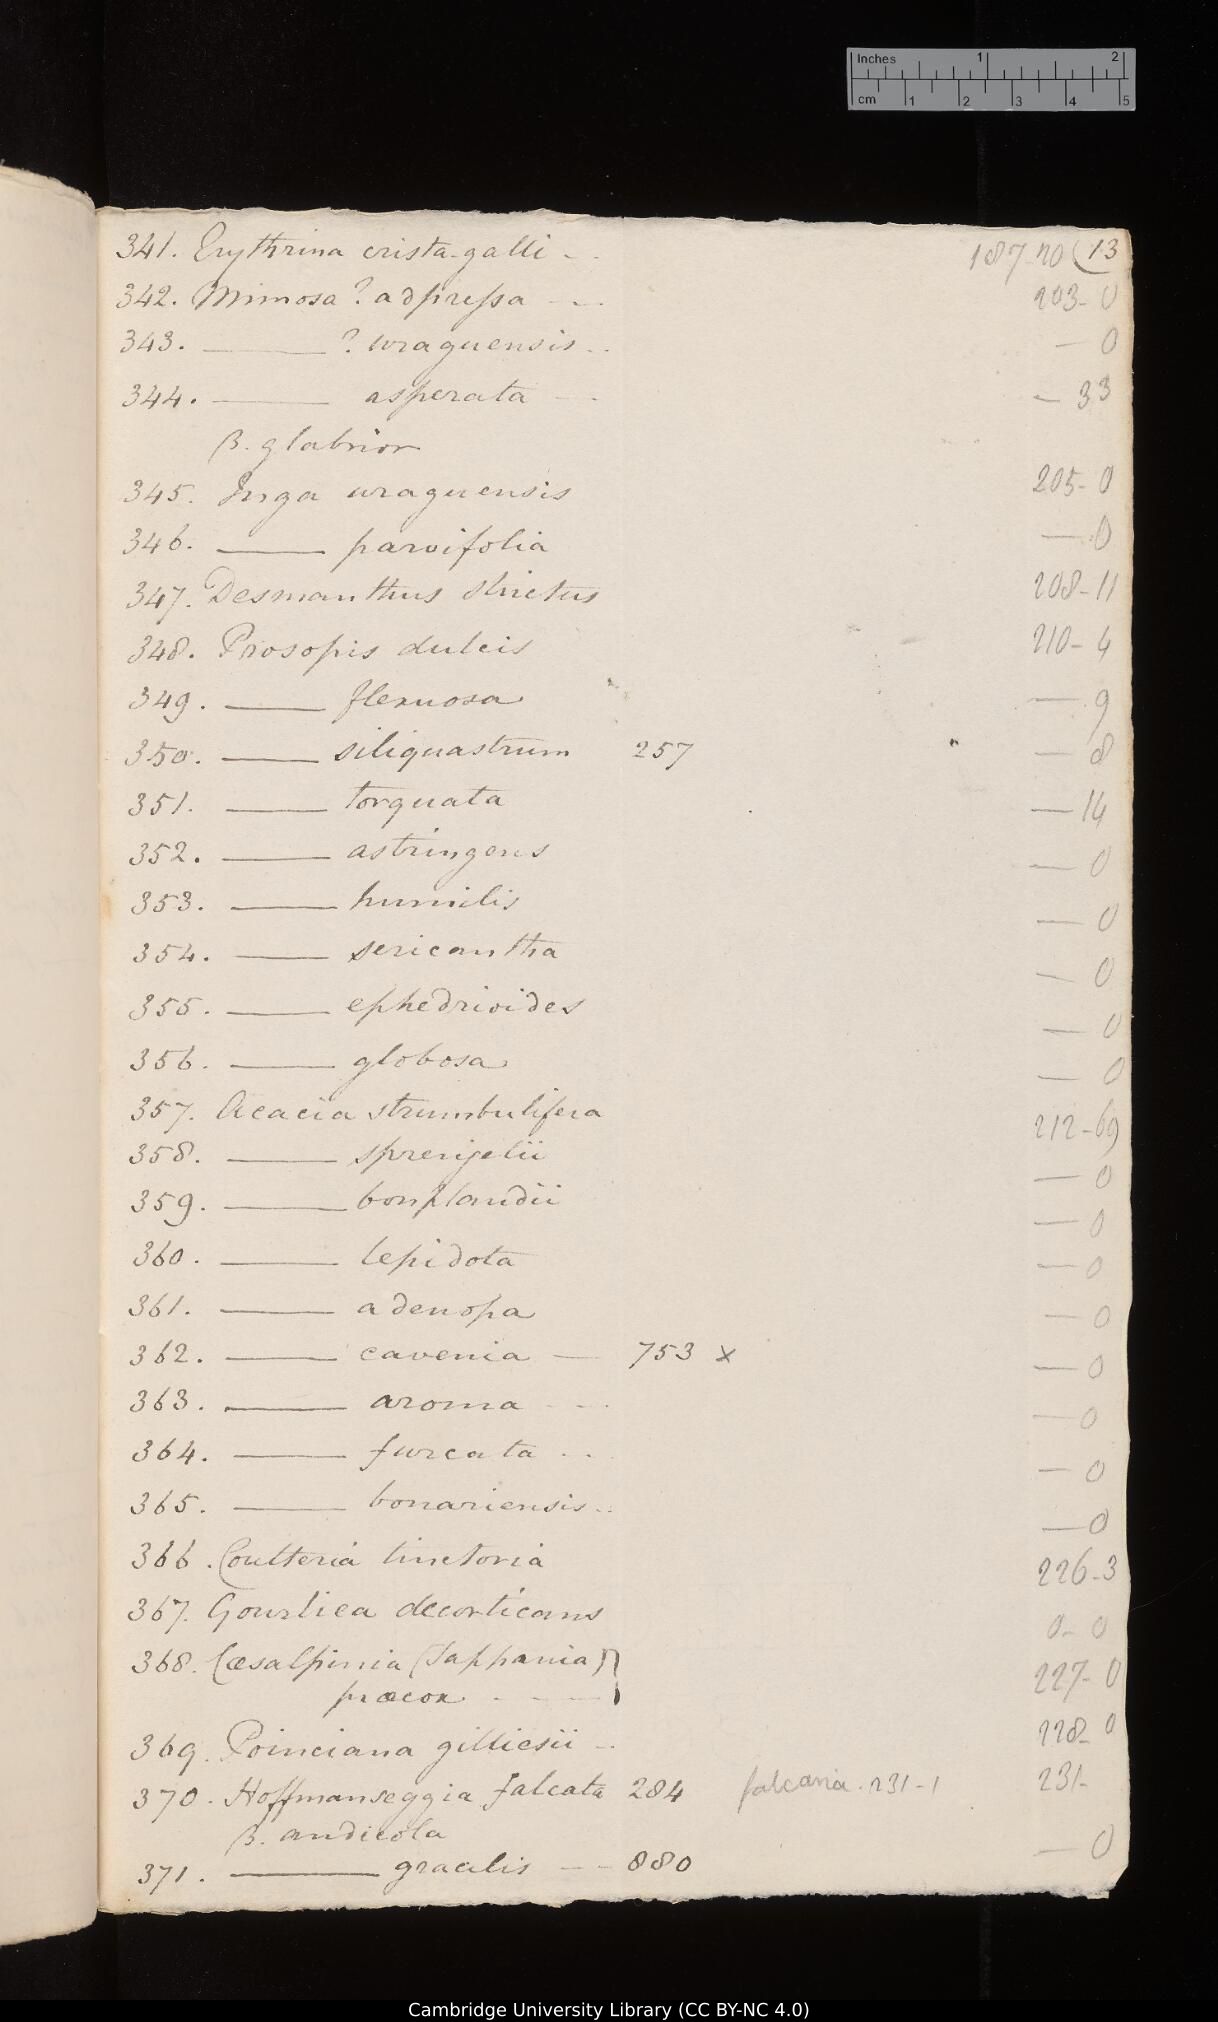 Inches 1 2
cm 1 2 3 4 5
341. Erythrina crista-galli - . 187-20 (13
342. Mimosa ? adpressa - - . 203- 0
343. ——— ? uraguensis . . — 0
344. ——— asperata - - — 33
β. glabrior
345. Inga uraguensis 205- 0
346. ——— parvifolia — 0
347. Desmanthus strictus 208-11
348. Prosopis dulcis 210- 4
349. ——— flexuosa — 9
350. ——— siliquastrum 257 — 8
351. ——— torquata — 14
352. ——— astringens — 0
353. ——— humilis — 0
354. ——— sericantha — 0
355. ——— ephedrioides — 0
356. ——— globosa — 0
357. Acacia strumbulifera 212-69
358. ——— sprengelii — 0
359. ——— bonplandii — 0
360. ——— lepidota — 0
361. ——— adenopa — 0
362. ——— cavenia — 753 x — 0
363. ——— aroma - - . — 0
364. ——— furcata . . — 0
365. ——— bonariensis . . — 0
366. Coulteria tinctoria 226-3
367. Gourliea decorticans 0- 0
368. Cæsalpinia (Sappania) } 227- 0
præcox - - -
369. Poinciana gilliesii - . 228- 0
370. Hoffmanseggia falcata 284 falcaria . 231-1 231-
β. andicola
371. ——— gracilis - - 880 — 0
Cambridge University Library (CC BY-NC 4.0)